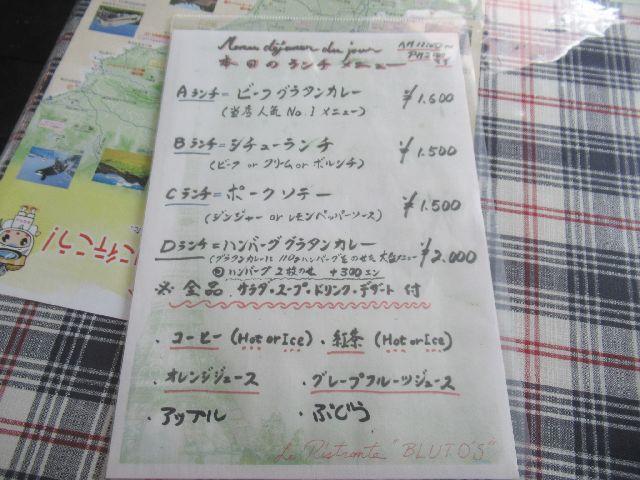 Menu déjeuner du jour
本日のランチメニュー
Aランチ=ビーフグラタンカレー ¥1.600
(当店人気No.1メニュー)
Bランチ=シチューランチ ¥1.500
(ビーフ or クリーム or ボルシチ)
Cランチ=ポークソテー ¥1.500
(ジンジャー or レモンペッパーソース)
Dランチ=ハンバーググラタンカレー ¥2.000
(グラタンカレーに110gハンバーグをのせた大盛メニュー
ハンバーグ2枚のせ +300エン
※全品 サラダ・スープ・ドリンク・デザート付
・コーヒー (Hot or Ice) ・紅茶 (Hot or Ice)
・オレンジジュース ・グレープフルーツジュース
・アップル ・ぶどう
Le Ristrante "BLUTO'S"
に行こう!